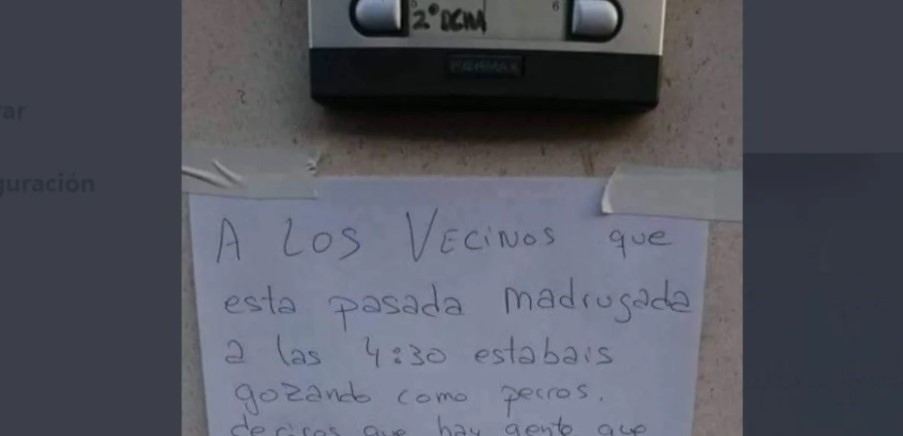 rar
guración
6
2º DCHA
FERMAX
A LOS VECINOS que
esta pasada madrugada
a las 4:30 estabais
gozando como perros.
deciros que hay gente que